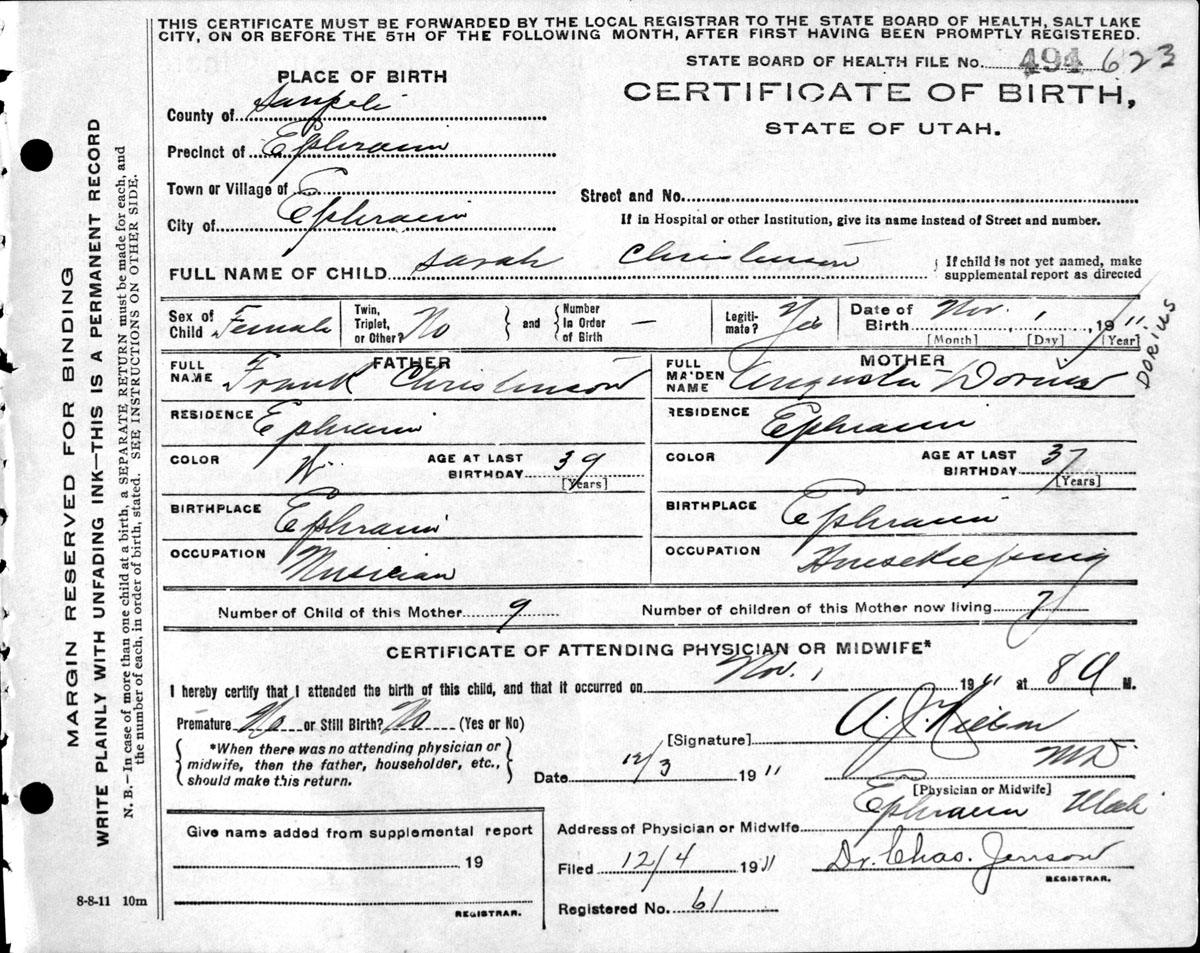 THIS CERTIFICATE MUST BE FORWARDED BY THE LOCAL REGISTRAR TO THE STATE BOARD OF HEALTH, SALT LAKE
CITY, ON OR BEFORE THE 5TH OF THE FOLLOWING MONTH, AFTER FIRST HAVING BEEN PROMPTLY REGISTERED.
STATE BOARD OF HEALTH FILE No. 494 623
PLACE OF BIRTH
CERTIFICATE OF BIRTH,
STATE OF UTAH.
County of Sanpete
Precinct of Ephraim
Town or Village of
City of Ephraim
Street and No.
If in Hospital or other Institution, give its name instead of Street and number.
FULL NAME OF CHILD Sarah Christenson
{ If child is not yet named, make
supplemental report as directed
Sex of Child Female
Twin, Triplet, or Other? No
} and { Number In Order of Birth —
Legiti-mate? Yes
Date of Birth Nov. 1, 1911
[Month] [Day] [Year]
DORIUS
FATHER
FULL NAME Frank Christenson
RESIDENCE Ephraim
COLOR W
AGE AT LAST BIRTHDAY 39
[Years]
BIRTHPLACE Ephraim
OCCUPATION Musician
MOTHER
FULL MAIDEN NAME Augusta Dorius
RESIDENCE Ephraim
COLOR
AGE AT LAST BIRTHDAY 37
[Years]
BIRTHPLACE Ephraim
OCCUPATION Housekeeping
Number of Child of this Mother 9
Number of children of this Mother now living 7
CERTIFICATE OF ATTENDING PHYSICIAN OR MIDWIFE*
I hereby certify that I attended the birth of this child, and that it occurred on Nov. 1 1911 at 8 A M.
Premature No or Still Birth? No (Yes or No)
{ *When there was no attending physician or
midwife, then the father, householder, etc.,
should make this return. }
[Signature] A. J. Nielson
MD
Date 12/3 1911
[Physician or Midwife]
Address of Physician or Midwife Ephraim Utah
Filed 12/4 1911
Dr. Chas. Jenson
REGISTRAR.
Registered No. 61
Give name added from supplemental report
19
REGISTRAR.
8-8-11 10m
MARGIN RESERVED FOR BINDING
WRITE PLAINLY WITH UNFADING INK—THIS IS A PERMANENT RECORD
N. B.—In case of more than one child at a birth, a SEPARATE RETURN must be made for each, and
the number of each, in order of birth, stated. SEE INSTRUCTIONS ON OTHER SIDE.